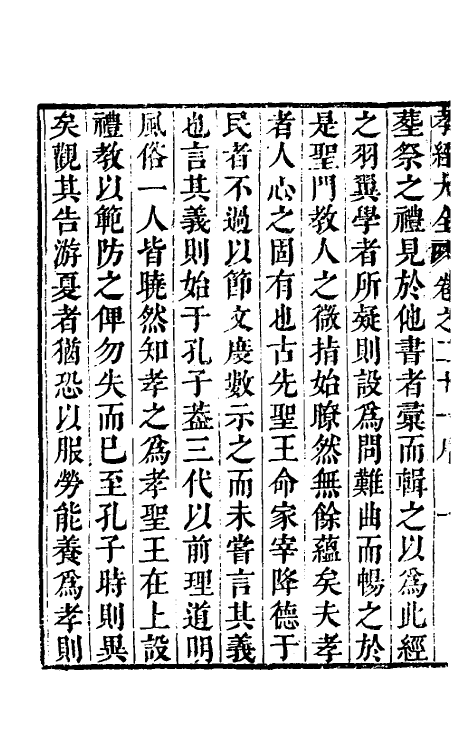 孝經大全 卷之二十一序 一
塟祭之禮見於他書者彚而輯之以爲此經
之羽翼學者所疑則設爲問難曲而暢之於
是聖門教人之微指始瞭然無餘蘊矣夫孝
者人心之固有也古先聖王命家宰降德于
民者不過以節文度數示之而未嘗言其義
也言其義則始于孔子葢三代以前理道明
風俗一人皆曉然知孝之爲孝聖王在上設
禮教以範防之俾勿失而已至孔子時則異
矣觀其告游夏者猶恐以服勞能養爲孝則